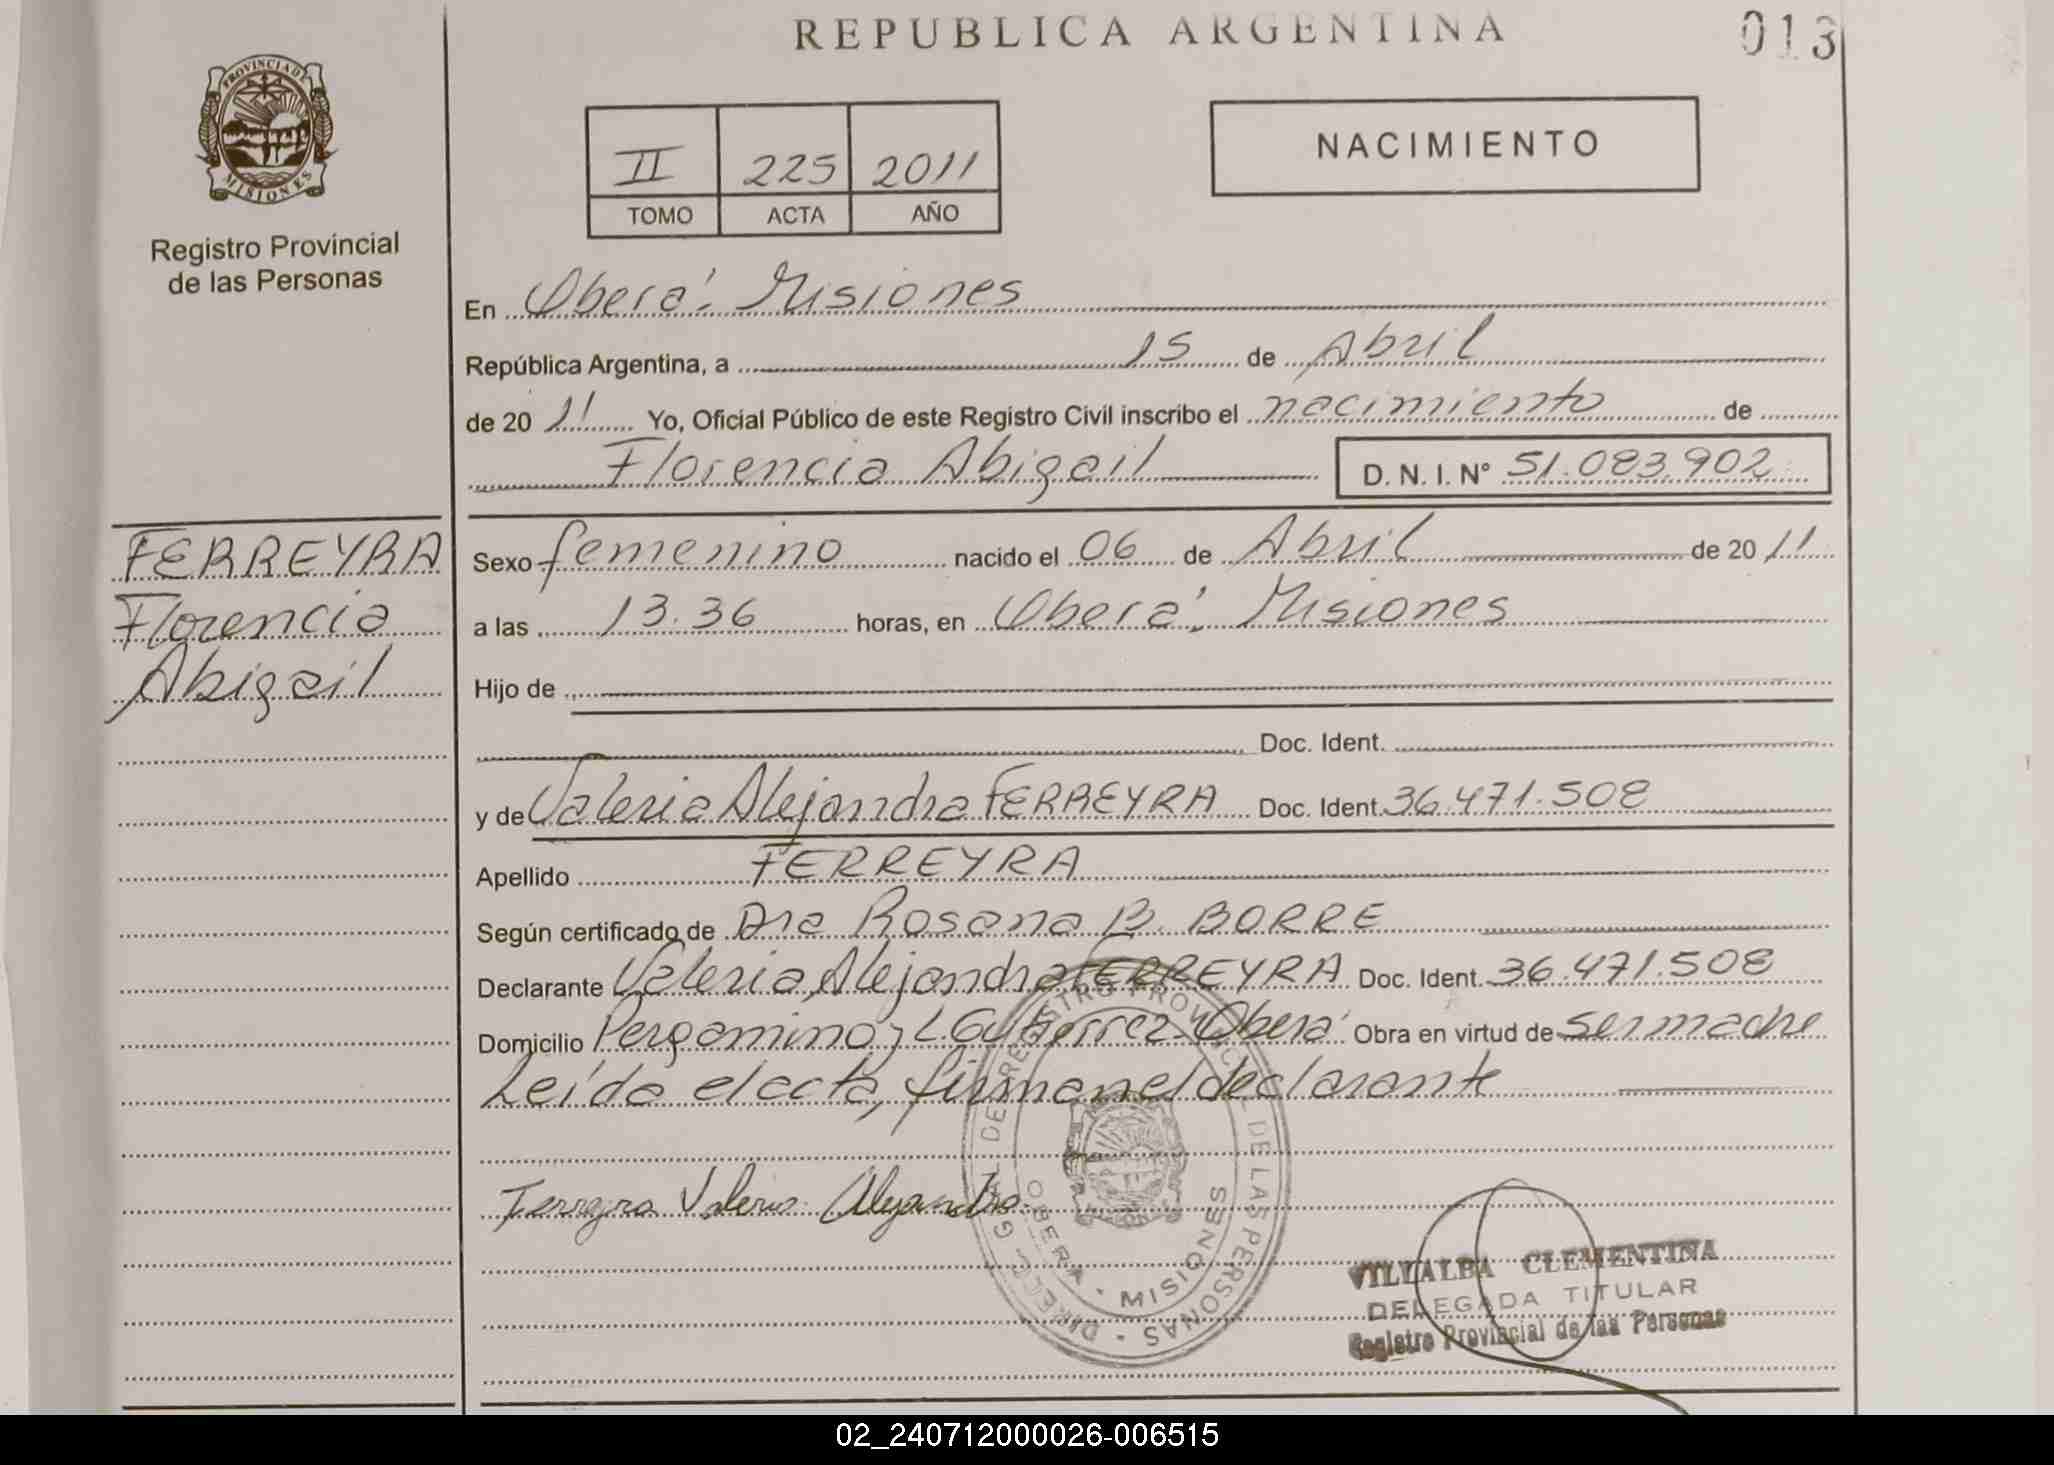 REPUBLICA ARGENTINA
013
PROVINCIA DE
MISIONES
Registro Provincial
de las Personas
II 225 2011
TOMO ACTA AÑO
NACIMIENTO
En Oberá. Misiones
República Argentina, a 15 de Abril
de 20 11 Yo, Oficial Público de este Registro Civil inscribo el nacimiento de
Florencia Abigail D. N. I. N° 51.083.902
FERREYRA
Florencia
Abigail
Sexo femenino nacido el 06 de Abril de 20 11
a las 13.36 horas, en Oberá. Misiones
Hijo de
Doc. Ident.
y de Valeria Alejandra FERREYRA Doc. Ident. 36.471.508
Apellido FERREYRA
Según certificado de Dra Rosana B. BORRE
Declarante Valeria Alejandra FERREYRA Doc. Ident. 36.471.508
Domicilio Pergamino y L. Gutierrez-Oberá Obra en virtud de ser madre
Leída el acta, firman el declarante
Ferreyra Valeria Alejandra.
DIRECC. GRAL. DE REGISTRO PROVINCIAL DE LAS PERSONAS
OBERA - MISIONES
VILLALBA CLEMENTINA
DELEGADA TITULAR
Registro Provincial de las Personas
02_240712000026-006515